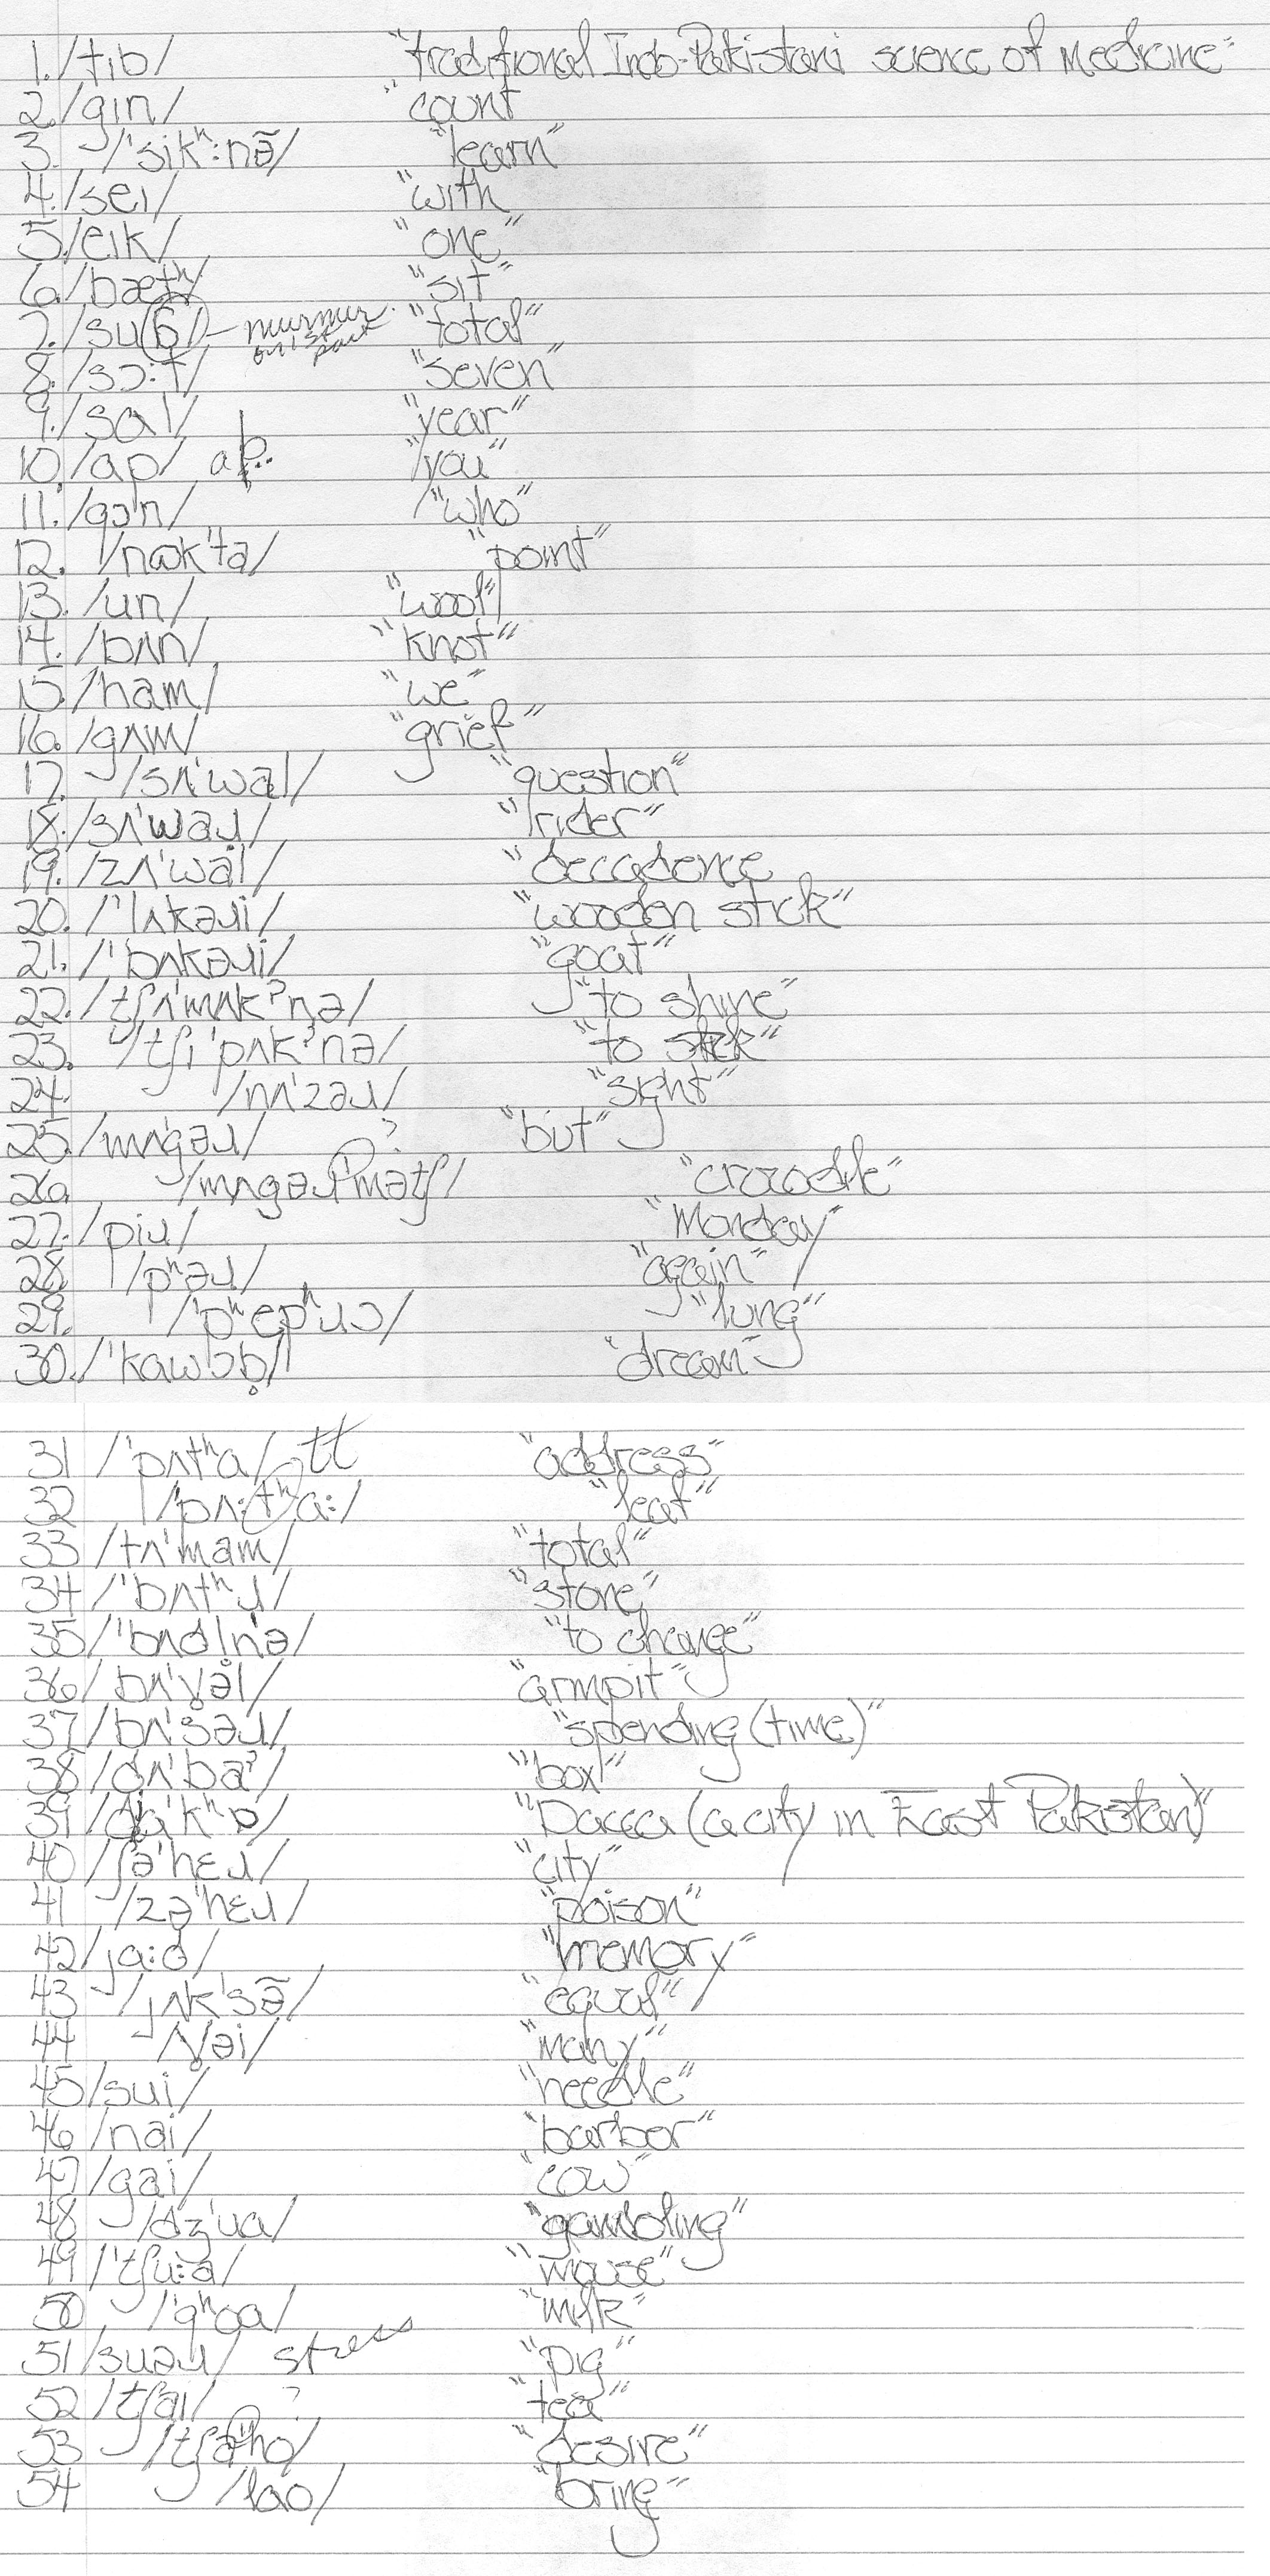 1. /tıb/ "traditional Indo-Pakistani science of Medicine"
2. /gın/ "count
3. /'sikʰ:nə̃/ "learn"
4. /seı/ "with
5. /eık/ "one"
6. /bætʰ/ "sit"
7. /sub/ – murmur on 1st part "total"
8. /sɔ:t/ "seven"
9. /sal/ "year"
10. /ap/ ap.. "you"
11. /gɔn/ "who"
12. /nɷk'tə/ "point"
13. /un/ "wool"
14. /bʌn/ "knot"
15. /ham/ "we"
16. /gʌm/ "grief"
17. /sʌ'wal/ "question"
18. /sʌ'waɹ/ "rider"
19. /zʌ'wal/ "decadence
20. /'lʌkəɹi/ "wooden stick"
21. /'bʌkəɹi/ "goat"
22. /tʃʌ'mʌkˀnə/ "to shine"
23. /tʃi'pʌkˀnə/ "to stick"
24. /nʌ'zəɹ/ "sight"
25. /mʌ'gəɹ/ "but"
26. /mʌgəɹ'mətʃ/ ? "crocodile"
27. /piɹ/ "Monday"
28. /pʰəɹ/ "again"
29. /'pʰepʰɹɔ/ "lung"
30. /'kawɔb̥/ "dream"
31 /'pʌtʰa/ tt "address"
32 /'pʌ:tʰa:/ "leaf"
33 /tʌ'mam/ "total"
34 /'bʌtʰɹ/ "stone"
35 /'bʌdlnə/ "to change"
36 /bʌ'ɣəl/ "armpit"
37 /bʌ'səɹ/ "spending (time)"
38 /dʌ'baˀ/ "box"
39 /da'kʰɒ/ "Dacca (a city in East Pakistan)"
40 /ʃə'hɛɹ/ "city"
41 /zə'hɛɹ/ "poison"
42 /ja:d/ "memory"
43 /jʌk'sə̃/ "equal"
44 /ɣəi/ "many"
45 /sui/ "needle"
46 /nai/ "barber"
47 /gai/ "cow"
48 /dʒ'ua/ "gambling"
49 /'tʃu:a/ "mouse"
50 /'gʰoa/ "milk"
51 /suəɹ/ stress "pig"
52 /tʃaı/ "tea"
53 /tʃa'ho/ ? "desire"
54 /lao/ "bring"